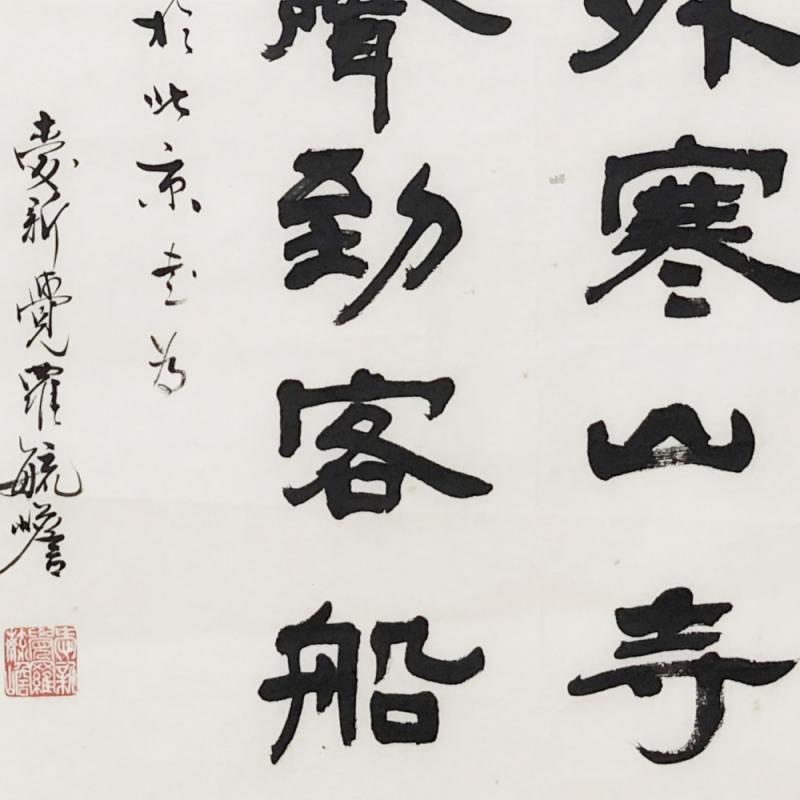 外寒山寺
聲到客船
於北京書為
愛新覺羅毓嶦
愛新
覺羅
毓嶦